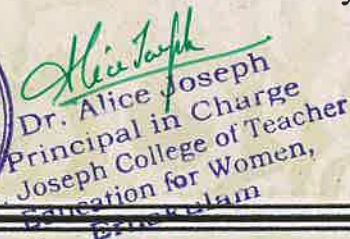 Alice Joseph
Dr. Alice Joseph
Principal in Charge
Joseph College of Teacher
Education for Women,
Ernakulam